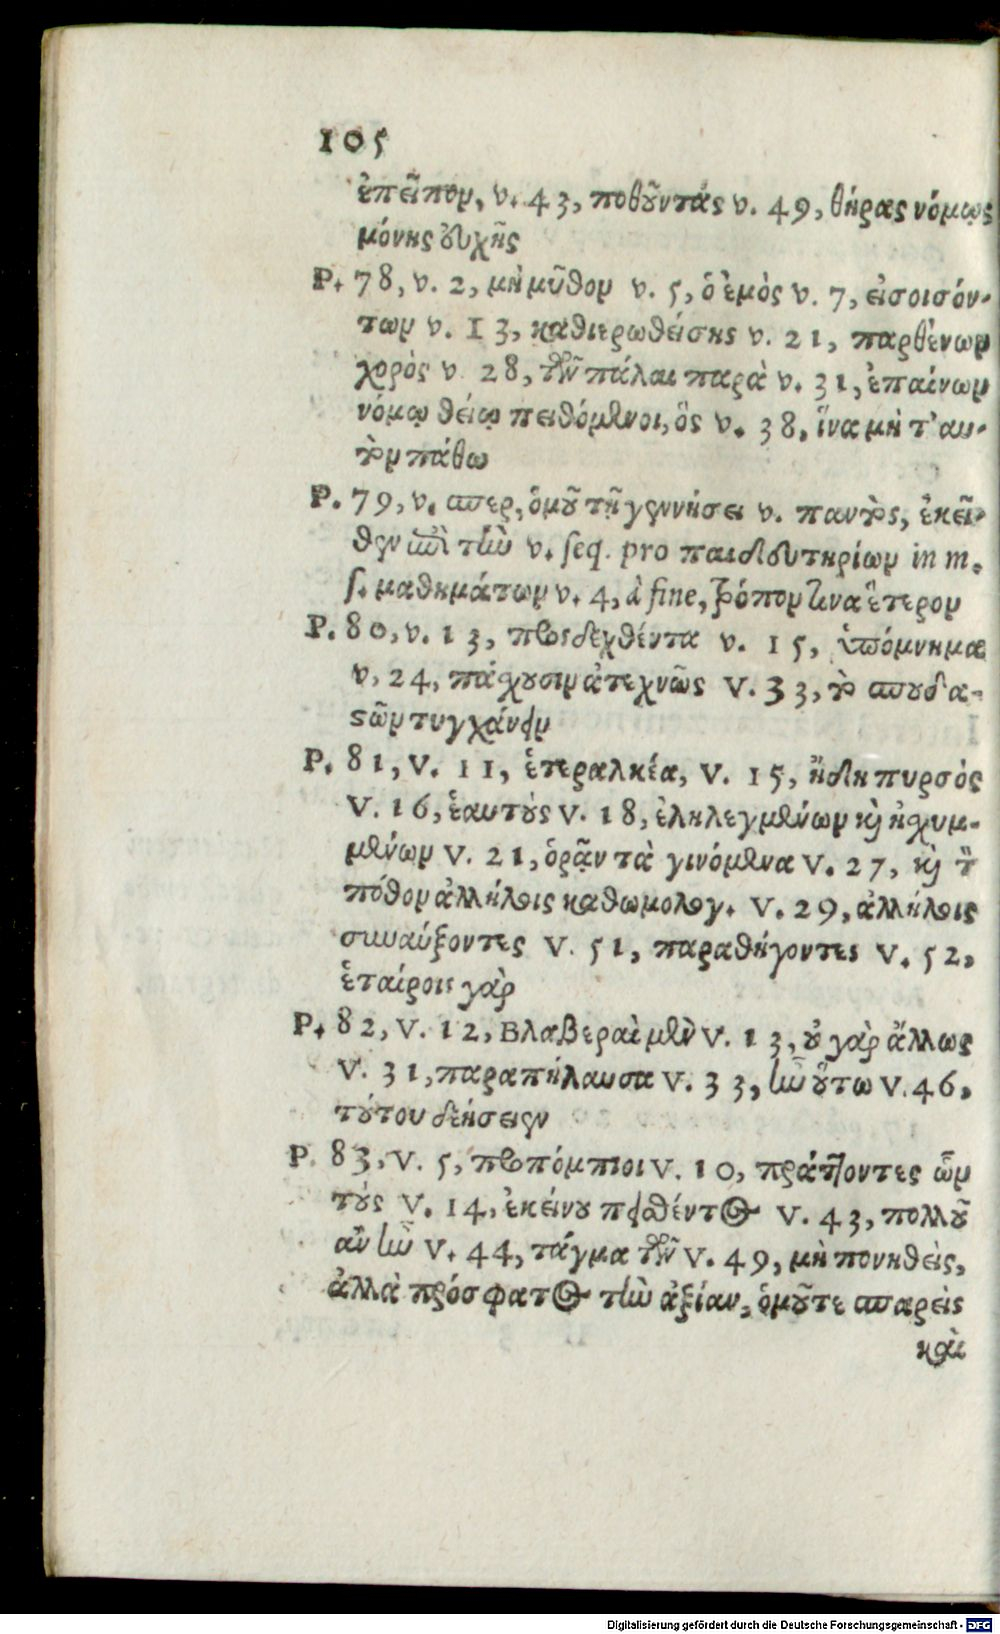 105
ἐπεῖπον, v. 43, ποθοῦντάς v. 49, θήρας νόμῳς
μόνης εὐχῆς
P. 78, v. 2, μὴ μῦθον v. 5, ὁ ἐμὸς v. 7, εἰσοισόν-
των v. 13, καθιερωθείσης v. 21, παρθένων
χορὸς v 28, τῶν πάλαι παρὰ v. 31, ἐπαίνων
νόμῳ θείῳ πειθόμενοι, ὃς v. 38, ἵνα μὴ τ' αυ-
τὸν πάθω
P. 79, v. απερ, ὁμοῦ τῇ γεννήσει v. παντὸς, ἐκεῖ-
θεν ἐπὶ τὴν v. seq. pro παιδευτηρίων in m.
s. μαθημάτων v. 4, à fine, τρόπον τινα ἕτερον
P. 80, v. 13, προςδεχθέντα v. 15, ὑπόμνημα
v. 24, πάχουσιν ἀτεχνῶς V. 33, τὸ σπουδα-
στῶν τυγχάνειν
P. 81, V. 11, ἑτεραλκέα, V. 15, ἤδη πυρσὸς
V. 16, ἑαυτοὺς V. 18, ἐληλεγμένων καὶ ᾐσχυμ-
μένων V. 21, ὁρᾷν τὰ γινόμενα V. 27, καὶ τὸν
πόθον ἀλλήλοις καθωμολογ. V. 29, ἀλλήλοις
συναύξοντες V. 51, παραθήγοντες V. 52,
ἑταίροις γὰρ
P. 82, V. 12, Βλαβεραὶ μὲν V. 13, οὐ γὰρ ἄλλως
V. 31, παραπήλαυσα V. 33, ἦν οὕτω V. 46,
τούτου δεήσειεν
P. 83, V. 5, προπόμπιοι V. 10, πράττοντες ὧν
τοὺς V. 14, ἐκείνου πεισθέντος V. 43, πολλοῦ
ἂν ἦν V. 44, τάγμα τῶν V. 49, μὴ πονηθεὶς,
ἀλλὰ πρόσφατος τὴν ἀξίαν, ὁμοῦτε σπαρεὶς
καὶ
Digitalisierung gefördert durch die Deutsche Forschungsgemeinschaft - DFG